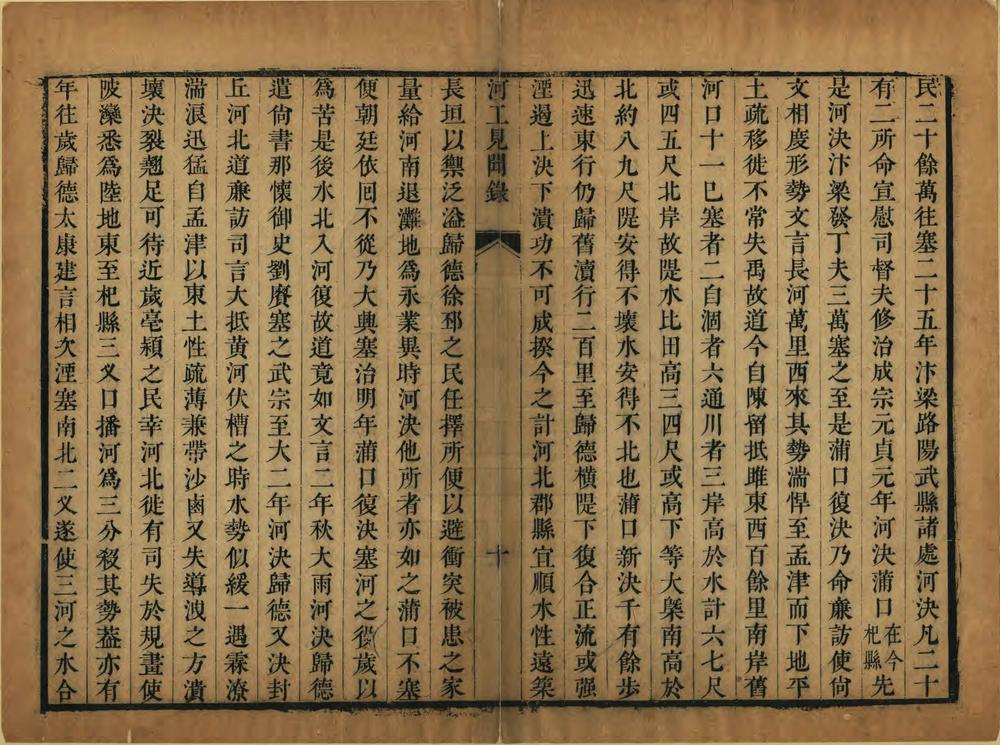 民二十餘萬往塞二十五年汴梁路陽武縣諸處河決凡二十
有二所命宣慰司督夫修治成宗元貞元年河決蒲口在今杞縣先
是河決汴梁發丁夫三萬塞之至是蒲口復決乃命廉訪使尙
文相度形勢文言長河萬里西來其勢湍悍至孟津而下地平
土疏移徙不常失禹故道今自陳留抵睢東西百餘里南岸舊
河口十一巳塞者二自涸者六通川者三岸高於水計六七尺
或四五尺北岸故隄水比田高三四尺或高下等大槩南高於
北約八九尺隄安得不壞水安得不北也蒲口新決千有餘步
迅速東行仍歸舊瀆行二百里至歸德橫隄下復合正流或强
湮遏上決下潰功不可成揆今之計河北郡縣宜順水性遠築
河工見聞錄
十
長垣以禦泛溢歸德徐邳之民任擇所便以避衝突被患之家
量給河南退灘地爲永業異時河決他所者亦如之蒲口不塞
便朝廷依囘不從乃大興塞治明年蒲口復決塞河之役歲以
爲苦是後水北入河復故道竟如文言二年秋大雨河決歸德
遣尙書那懷御史劉賡塞之武宗至大二年河決歸德又決封
丘河北道廉訪司言大抵黃河伏槽之時水勢似緩一遇霖潦
湍浪迅猛自孟津以東土性疏薄兼帶沙鹵又失導洩之方潰
壞決裂翹足可待近歲亳潁之民幸河北徙有司失於規畫使
陂濼悉爲陸地東至杞縣三义口播河爲三分殺其勢葢亦有
年往歲歸德太康建言相次湮塞南北二义遂使三河之水合